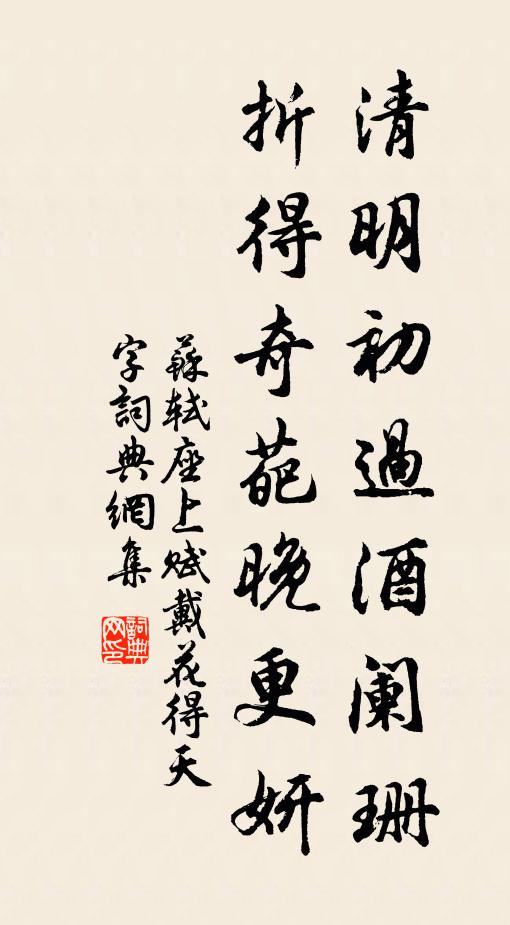 清明初過酒闌珊
折得奇葩晚更妍
蘇軾座上賦戴花得天
字詞典網集
詞典
网印